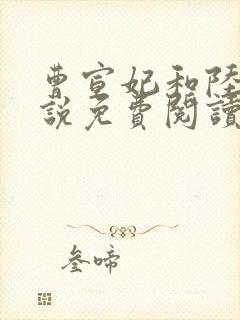 曹宣妃和陸
說免費閱讀
叁啼